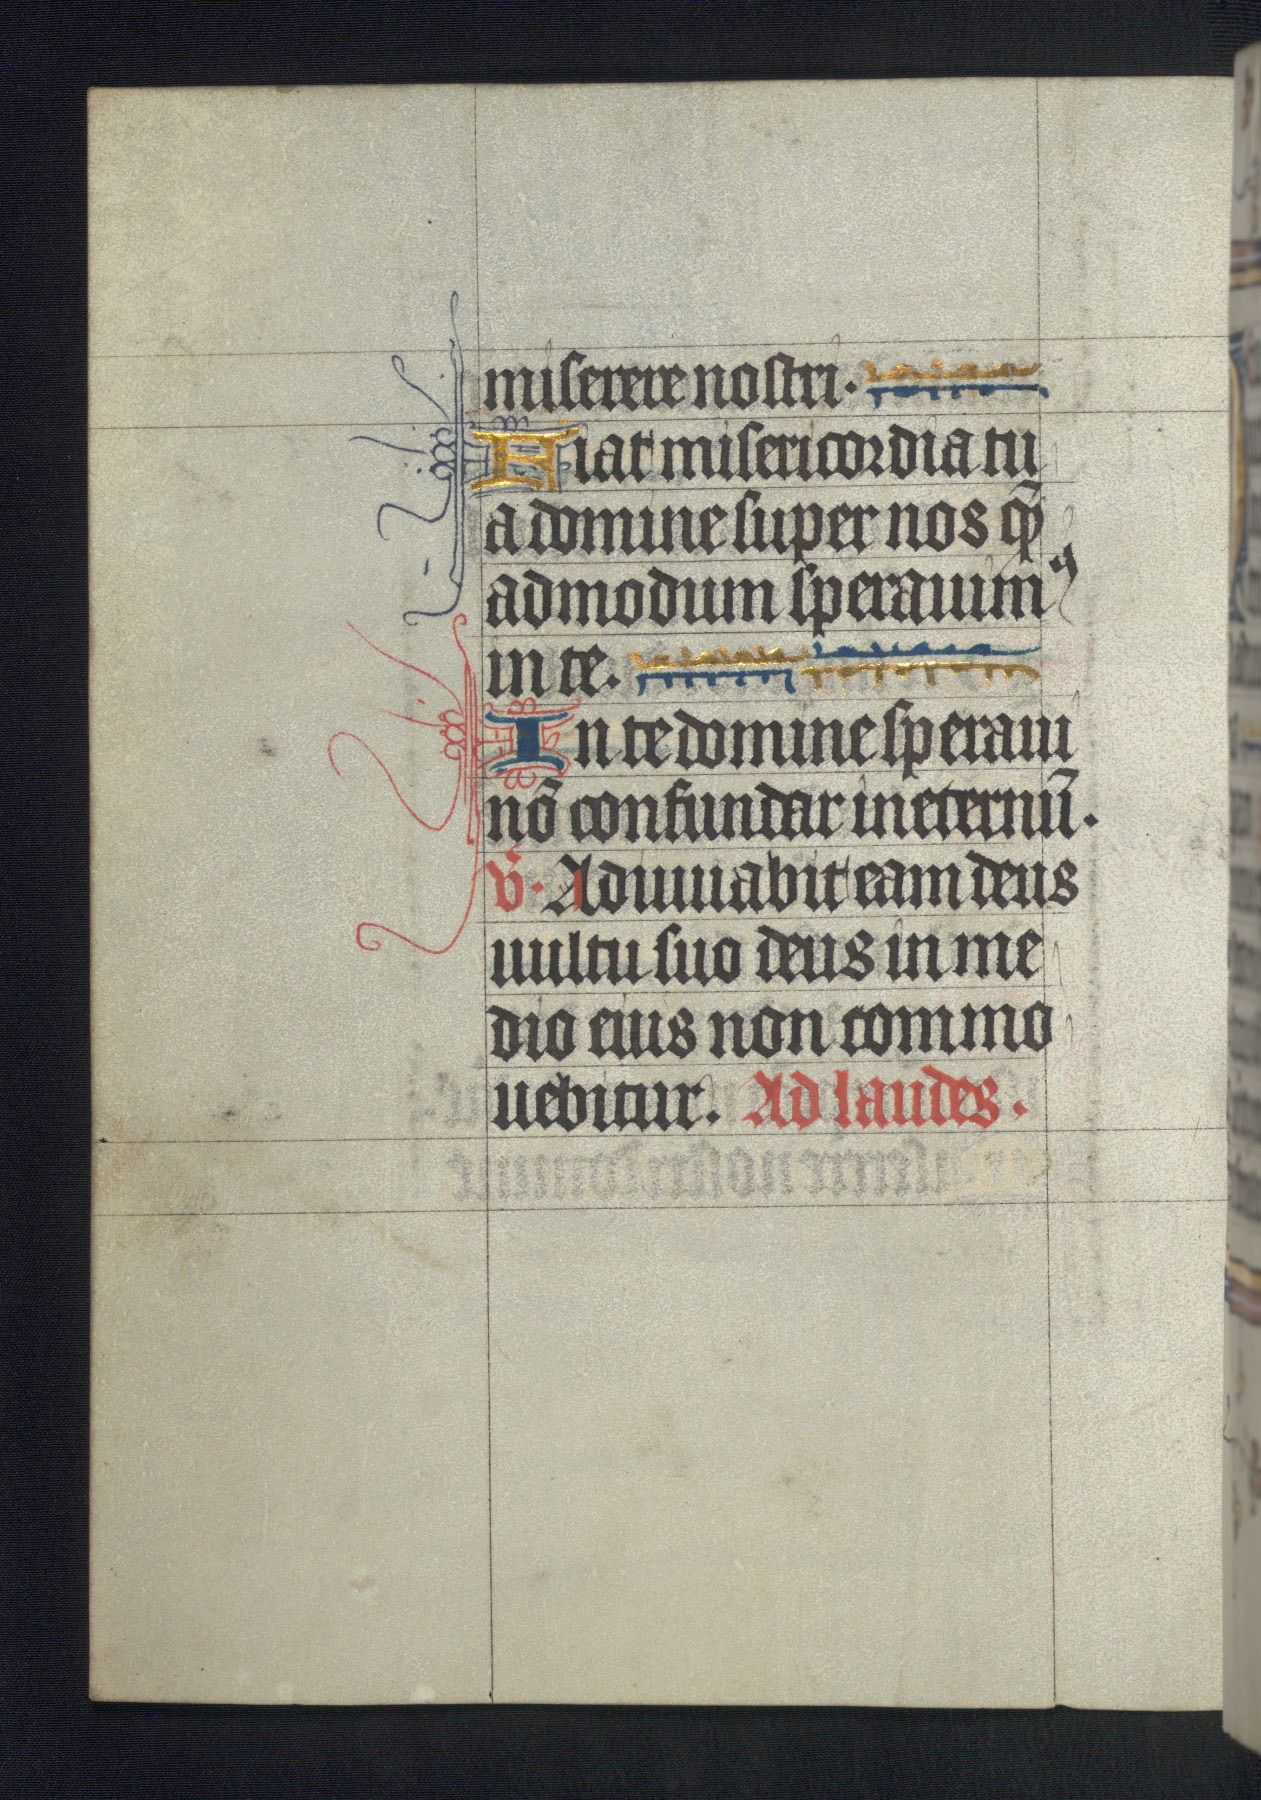 miserere nostri.
Fiat misericordia tu
a domine super nos que̅
admodum sperauim⁹
in te.
In te domine speraui
no̅ confundar in eternu̅.
v̅. Adiuuabit eam deus
uultu suo deus in me
dio eius non commo
uebitur. Ad laudes.